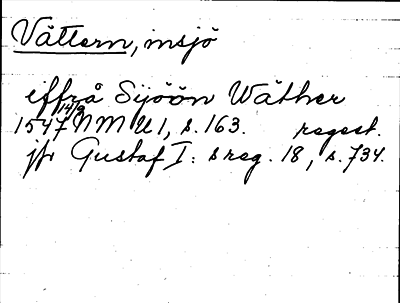 Vättern, insjö
iffrå Sijöön Wäther
1547 14/9 NM U1, s. 163. regest.
jfr Gustaf I: s reg. 18, s. 734.